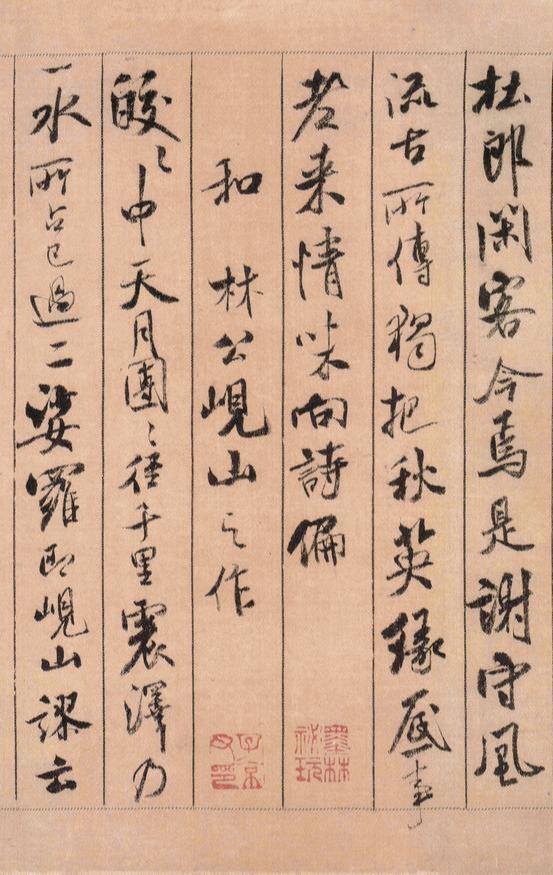 杜郎閑客今焉是謝守風
流古所傳獨把秋英緣底事
老来情味向詩偏
墨林秘玩
和林公峴山之作
子京父印
皎〻中天月團〻徑千里震澤乃
一水所占已過二娑羅即峴山謬云